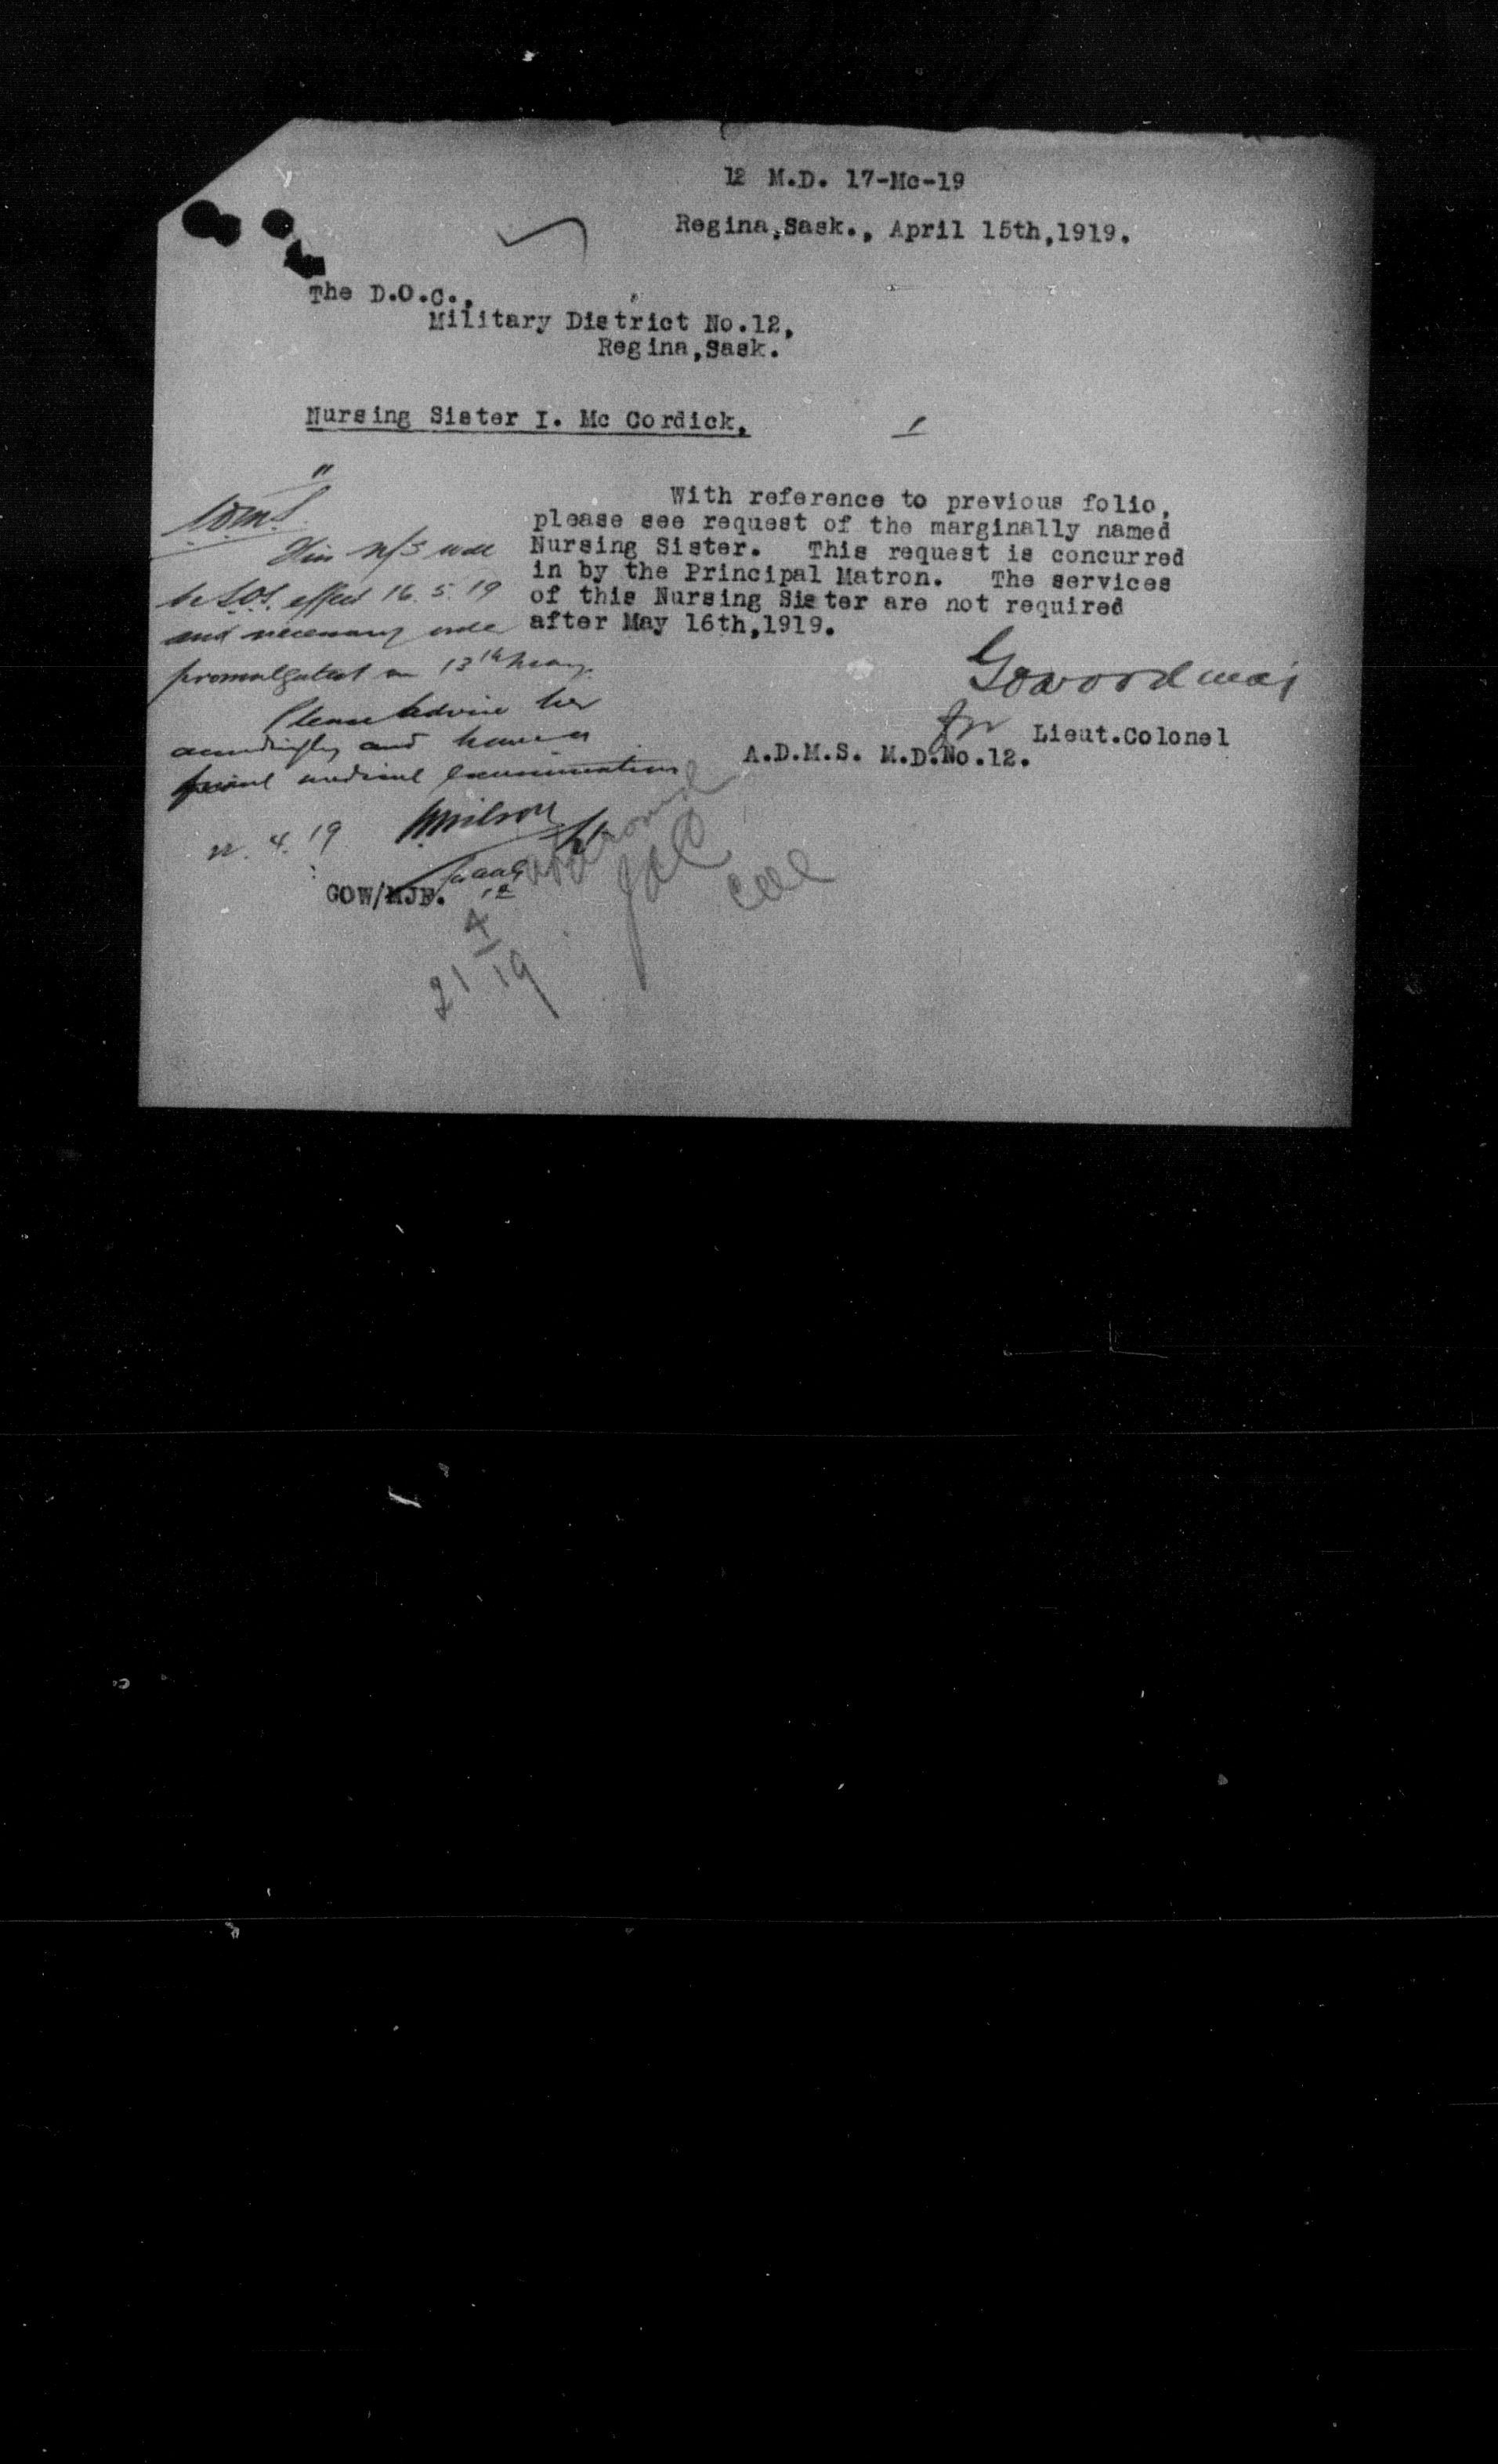 12 M.D. 17-Mc-19
Regina,Sask., April 15th,1919.
The D.O.C.,
Military District No.12,
Regina,Sask.
Nursing Sister I. Mc Cordick,
With reference to previous folio,
please see request of the marginally named
Nursing Sister. This request is concurred
in by the Principal Matron. The services
of this Nursing Sister are not required
after May 16th,1919.
for Lieut.Colonel
A.D.M.S. M.D.No.12.
This N/S will
be S.O.S. effect 16.5.19
and necessary order
promulgated on 13th May.
Please advise her
accordingly and have a
medical examination
4. 19
GOW/MJF.
21 4/19